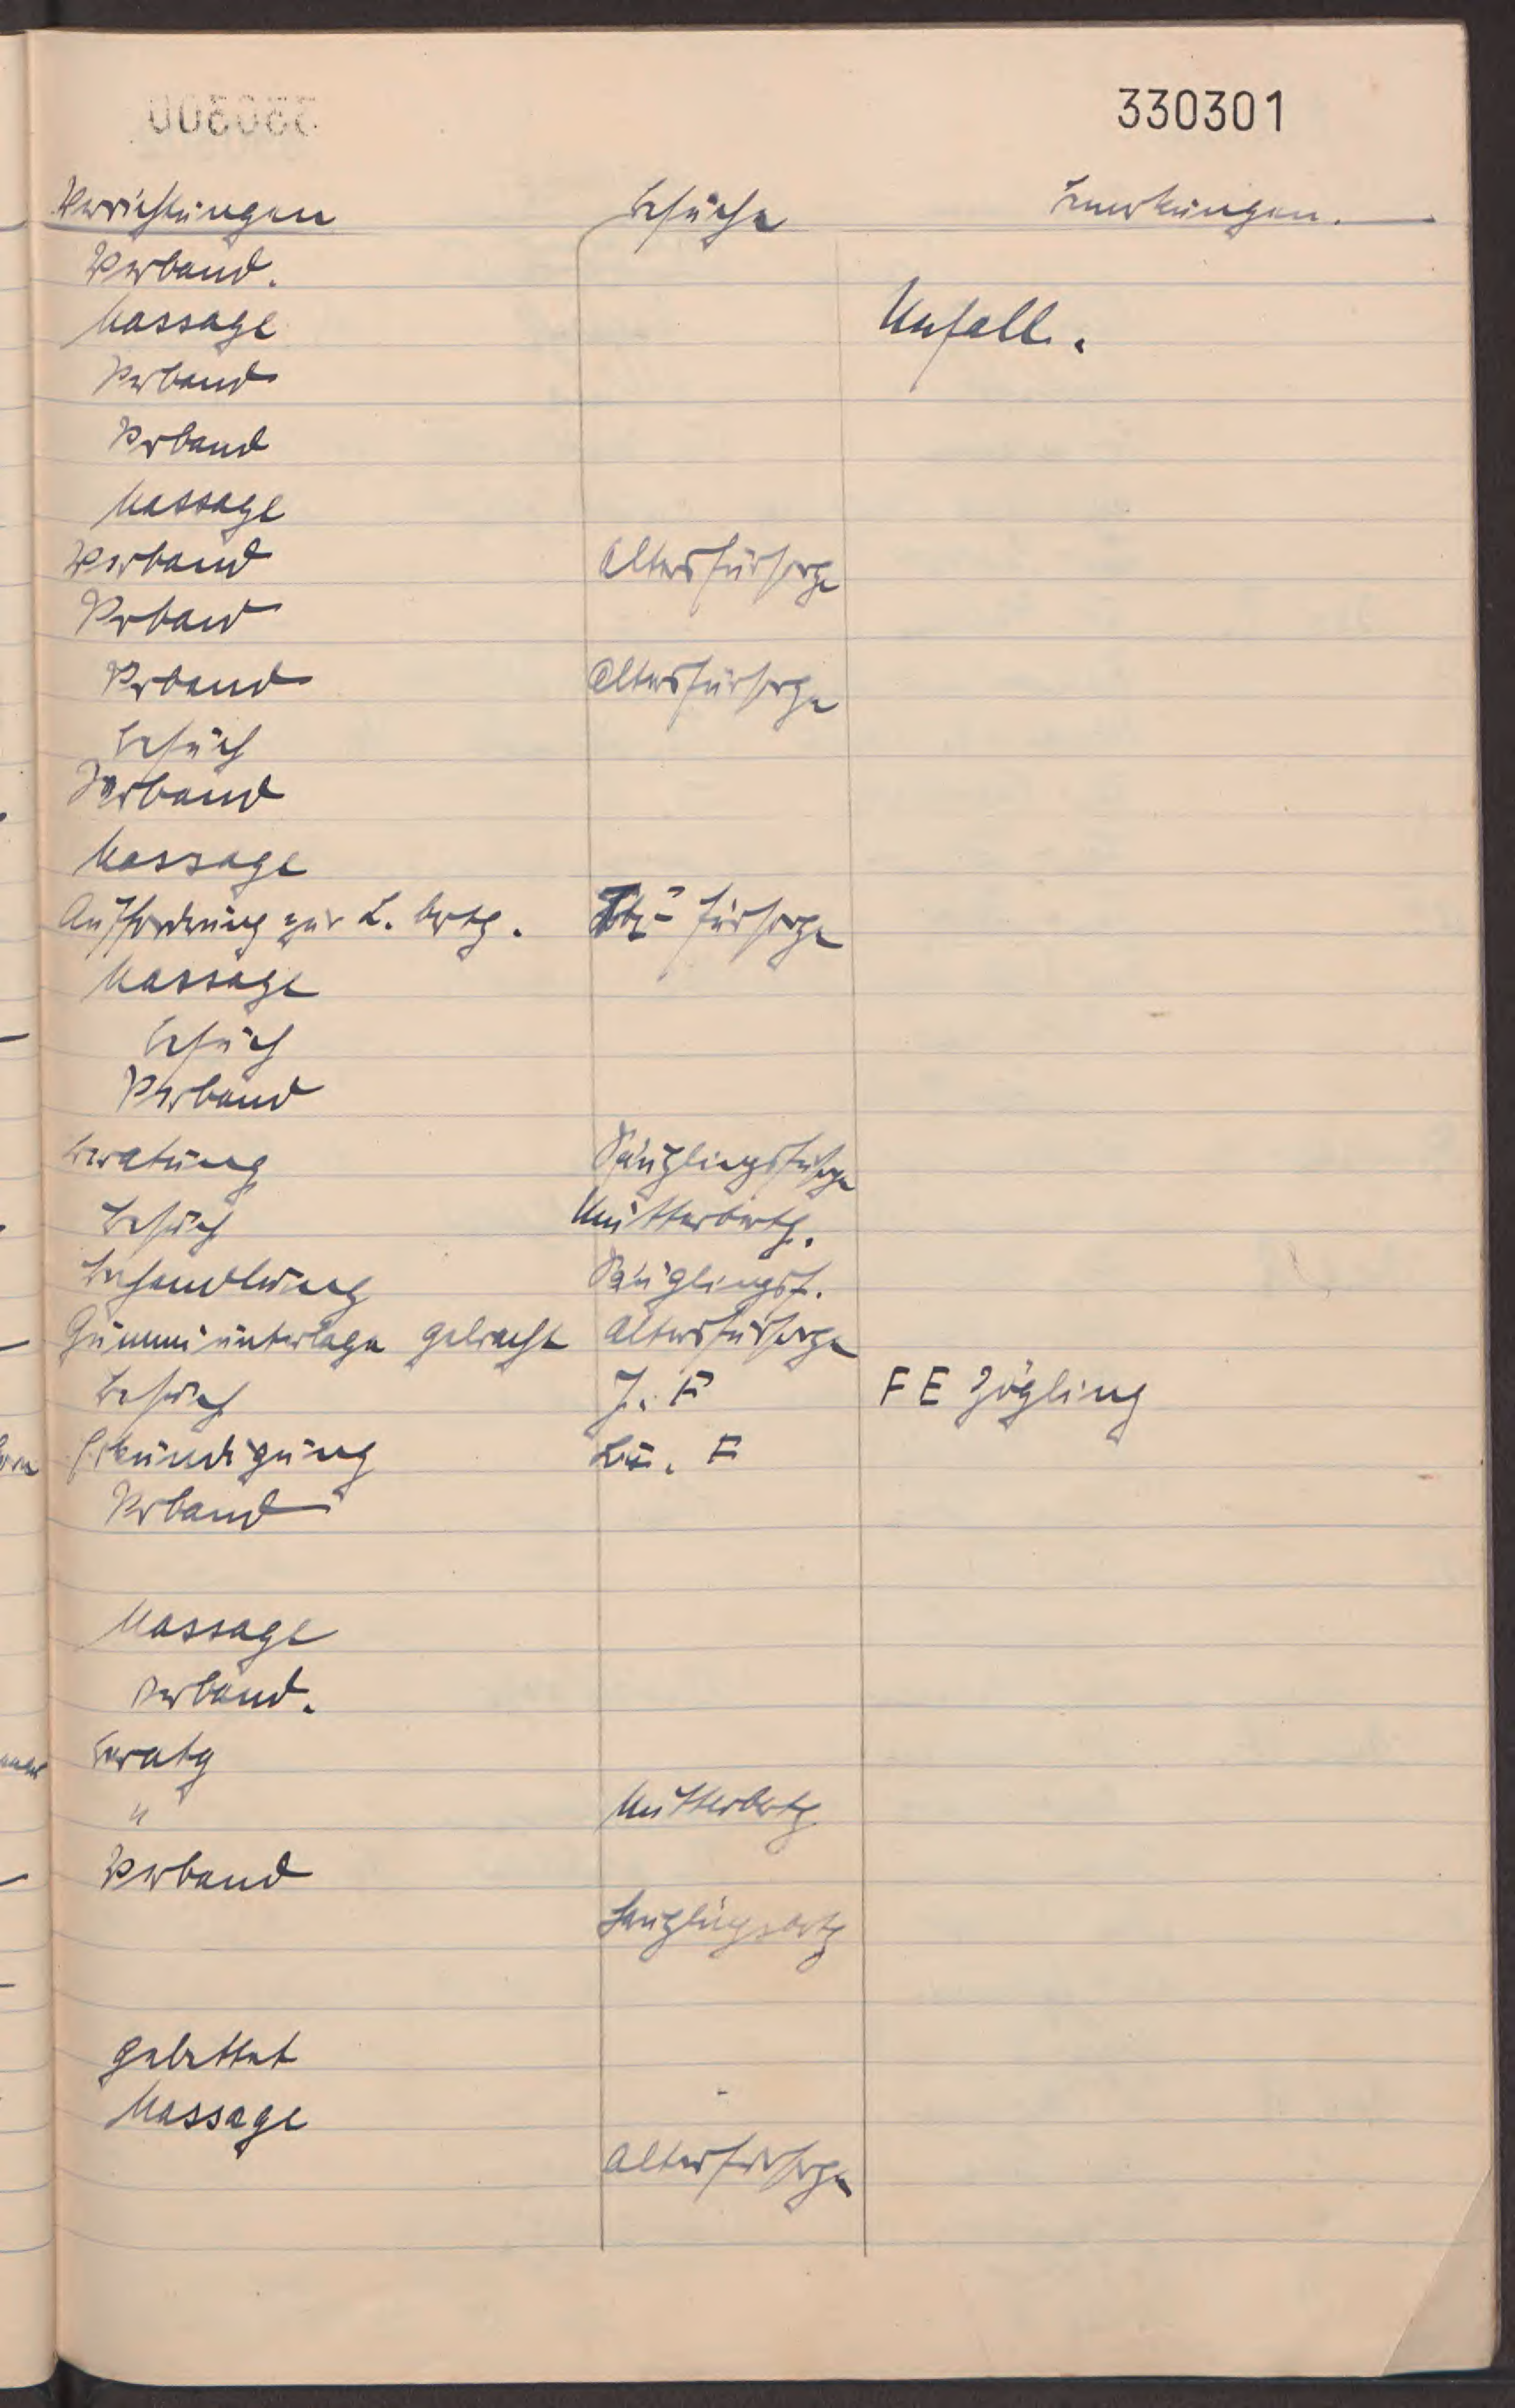 330301
Verrichtungen Besuche Bemerkungen.
Verband.
Massage Unfall.
Verband
Verband
Massage
Verband Altersfürsorge
Verband
Verband Altersfürsorge
Besuch
Verband
Massage
Aufforderung zur L. brtg. Tbc-fürsorge
Massage
Besuch
Verband
Beratung Säuglingsfürsorge
Besuch Mütterbertg.
Behandlung Säuglingsf.
Gummiunterlage gebracht Altersfürsorge
Besuch J. F FE Zögling
Erkundigung F
Verband
Massage
Verband.
Beratg
" Mutterbertg
Verband
Säuglingsbertg
gebettet
Massage
Altersfürsorge